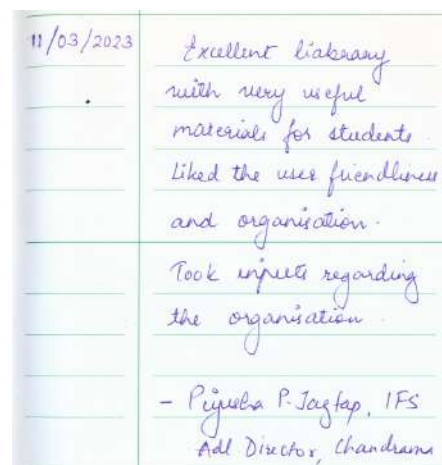 11/03/2023
Excellent liabrary
with very useful
materials for students.
Liked the user friendliness
and organisation.
Took inputs regarding
the organisation.
- Piyusha P. Jagtap, IFS
Adl Director, Chandrama